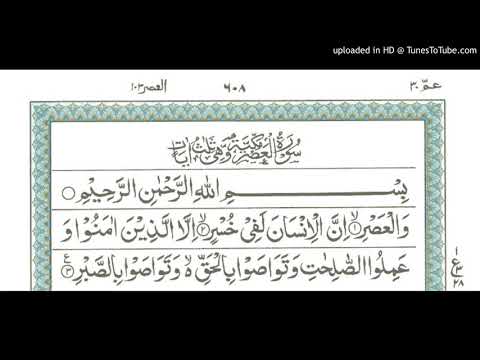 uploaded in HD @ TunesToTube.com
عمّ ۳۰
۶۰۸
العصر ۱۰۳
سُوْرَةُ الْعَصْرِ مَكِّيَّةٌ وَّهِيَ ثَلٰثُ اٰيَاتٍ
بِسْمِ اللّٰهِ الرَّحْمٰنِ الرَّحِيْمِ ۝
وَالْعَصْرِ ۙ﴿۱﴾ اِنَّ الْاِنْسَانَ لَفِيْ خُسْرٍ ۙ﴿۲﴾ اِلَّا الَّذِيْنَ اٰمَنُوْا وَ
عَمِلُوا الصّٰلِحٰتِ وَتَوَاصَوْا بِالْحَقِّ ۙ۬ وَتَوَاصَوْا بِالصَّبْرِ ﴿۳﴾ ع
۱
ع ۳
۲۸